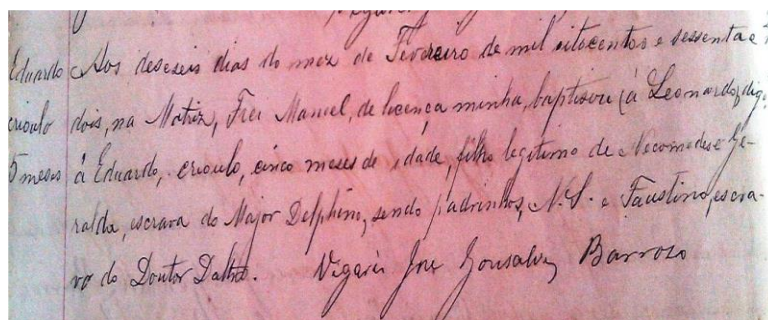 Eduardo Aos deseseis dias do mez de Fevereiro de mil oitocentos e sessenta e
crioulo dois, na Matriz, Frei Manuel, de licença minha, baptisou (á Leonardo, digo,
5 meses á Eduardo, crioulo, cinco meses de idade, filho legitimo de Nicomedes e Ge-
ralda, escrava do Major Delphino, sendo padrinhos, N. S. e Faustino, escra-
vo do Doutor Daltro. Vigario José Gonsalves Barroso